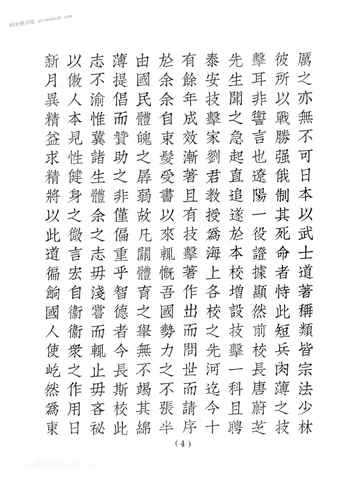 厲之亦無不可日本以武士道著稱類皆宗法少林
彼所以戰勝强俄制其死命者恃此短兵肉薄之技
擊耳非譽言也遼陽一役證據顯然前校長唐蔚芝
先生聞之急起直追遂於本校增設技擊一科且聘
泰安技擊家劉君教授爲海上各校之先河迄今十
有餘年成效漸著且有技擊著作出而問世而請序
於余余自束髮受書以來輒慨吾國勢力之不張半
由國民體魄之孱弱故凡關體育之舉無不竭其綿
薄提倡而贊助之非僅偏重乎智德者今長斯校此
志不渝惟冀諸生體余之志毋淺嘗而輒止毋吝祕
以傲人本見性健身之微言宏自衞衞衆之作用日
新月異精益求精將以此道徧餉國人使屹然爲東
(4)